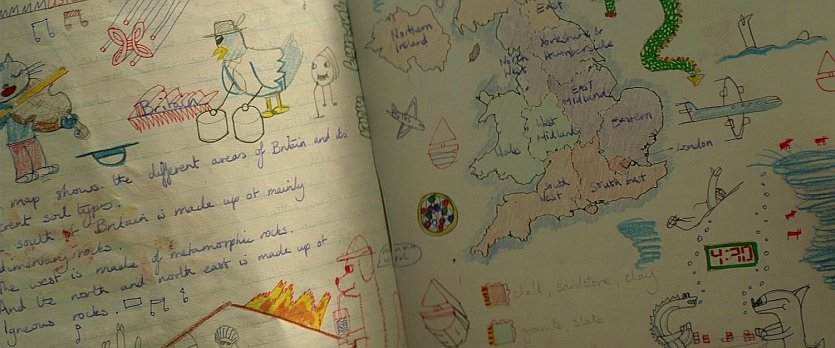 Britain
map shows the different areas of Britain and its
erent soil types.
south of Britain is made up of mainly
dimentary rocks.
The west is made of metamorphic rocks.
And the north and north east is made up of
Igneous rocks.
Northern
Ireland
East
North
West
Yorkshire &
Humberside
East
Midlands
West
Midlands
Wales
Eastern
South
West
South East
London
4:30
chalk, sandstone, clay
granite, slate